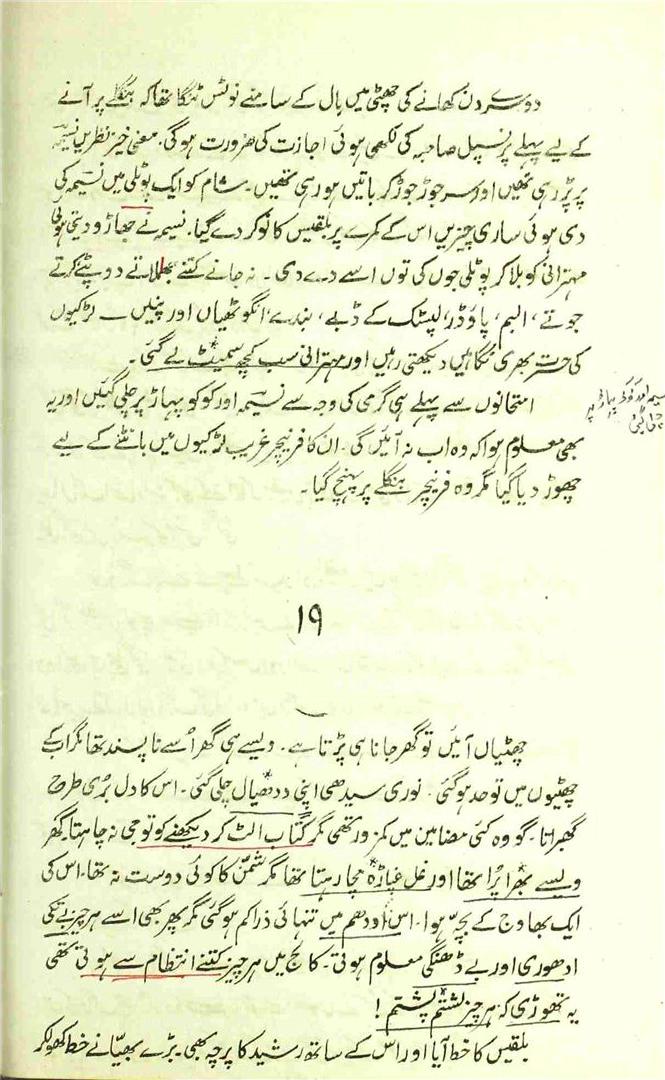 دوسرے دن کھانے کی چھٹی میں ہال کے سامنے نوٹس ٹنگا تھا کہ بنگلے پر آنے
کے لیے پہلے پرنسپل صاحبہ کی لکھی ہوئی اجازت کی ضرورت ہوگی. معنی خیز نظریں نسیمہ
پر پڑ رہی تھیں اور سر جوڑ جوڑ کر باتیں ہو رہی تھیں۔ شام کو ایک پوٹلی میں نسیمہ کی
دی ہوئی ساری چیزیں اس کے کمرے پر بلقیس کا نوکر دے گیا. نسیمہ نے جھاڑو دیتی ہوئی
مہترانی کو بلا کر پوٹلی جوں کی توں اسے دے دی۔ نہ جانے کتنے جھلملاتے دوپٹے کُرتے
جوتے، البم، پاؤڈر، لپسٹک کے ڈبے، بُندے، انگوٹھیاں اور پنیں ــ لڑکیوں
کی حسرت بھری نگاہیں دیکھتی رہیں اور مہترانی سب کچھ سمیٹ لے گئی۔
امتحانوں سے پہلے ہی گرمی کی وجہ سے نسیمہ اور کوکو پہاڑ پر چلی گئیں اور یہ
نسیمہ اور کوکو پہاڑ پر
چلی گئی
بھی معلوم ہوا کہ وہ اب نہ آئیں گی. ان کا فرنیچر غریب لڑکیوں میں بانٹنے کے لیے
چھوڑ دیا گیا مگر وہ فرنیچر بنگلے پر پہنچ گیا۔
۱۹
چھٹیاں آئیں تو گھر جانا ہی پڑتا ہے۔ ویسے ہی گھر اُسے ناپسند تھا مگر اب کے
چھٹیوں میں تو حد ہو گئی۔ نوری سیدھی اپنی ددھیال چلی گئی۔ اس کا دل بُری طرح
گھبراتا۔ گو وہ کئی مضامین میں کمزور تھی مگر کتاب الٹ کر دیکھنے کو تو جی نہ چاہتا. گھر
ویسے بھرا پُرا تھا اور غل غپاڑہ مچا رہتا تھا مگر شمّن کا کوئی دوست نہ تھا۔ اس کی
ایک بھاوج کے بچہ ہوا۔ اس اودھم میں تنہائی ذرا کم ہو گئی مگر پھر بھی اسے ہر چیز بے تکی
ادھوری اور بے ڈھنگی معلوم ہوتی۔ کالج میں ہر چیز کتنے انتظام سے ہوتی تھی
یہ تھوڑی کہ ہر چیز لشتم پشتم!
بلقیس کا خط آیا اور اس کے ساتھ رشید کا پرچہ بھی۔ بڑے بھیّا نے خط کھول کر